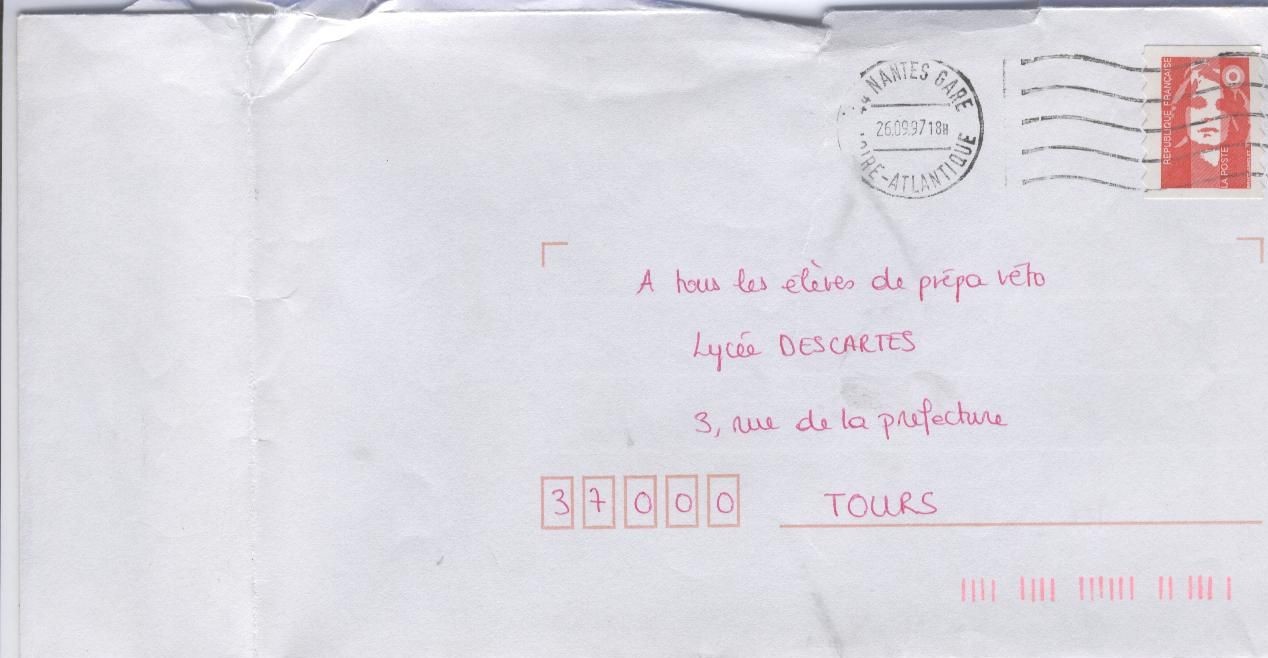 44 NANTES GARE
26.09.97 18H
LOIRE-ATLANTIQUE
REPUBLIQUE FRANÇAISE
LA POSTE
A tous les élèves de prépa véto
Lycée DESCARTES
3, rue de la prefecture
37000 TOURS